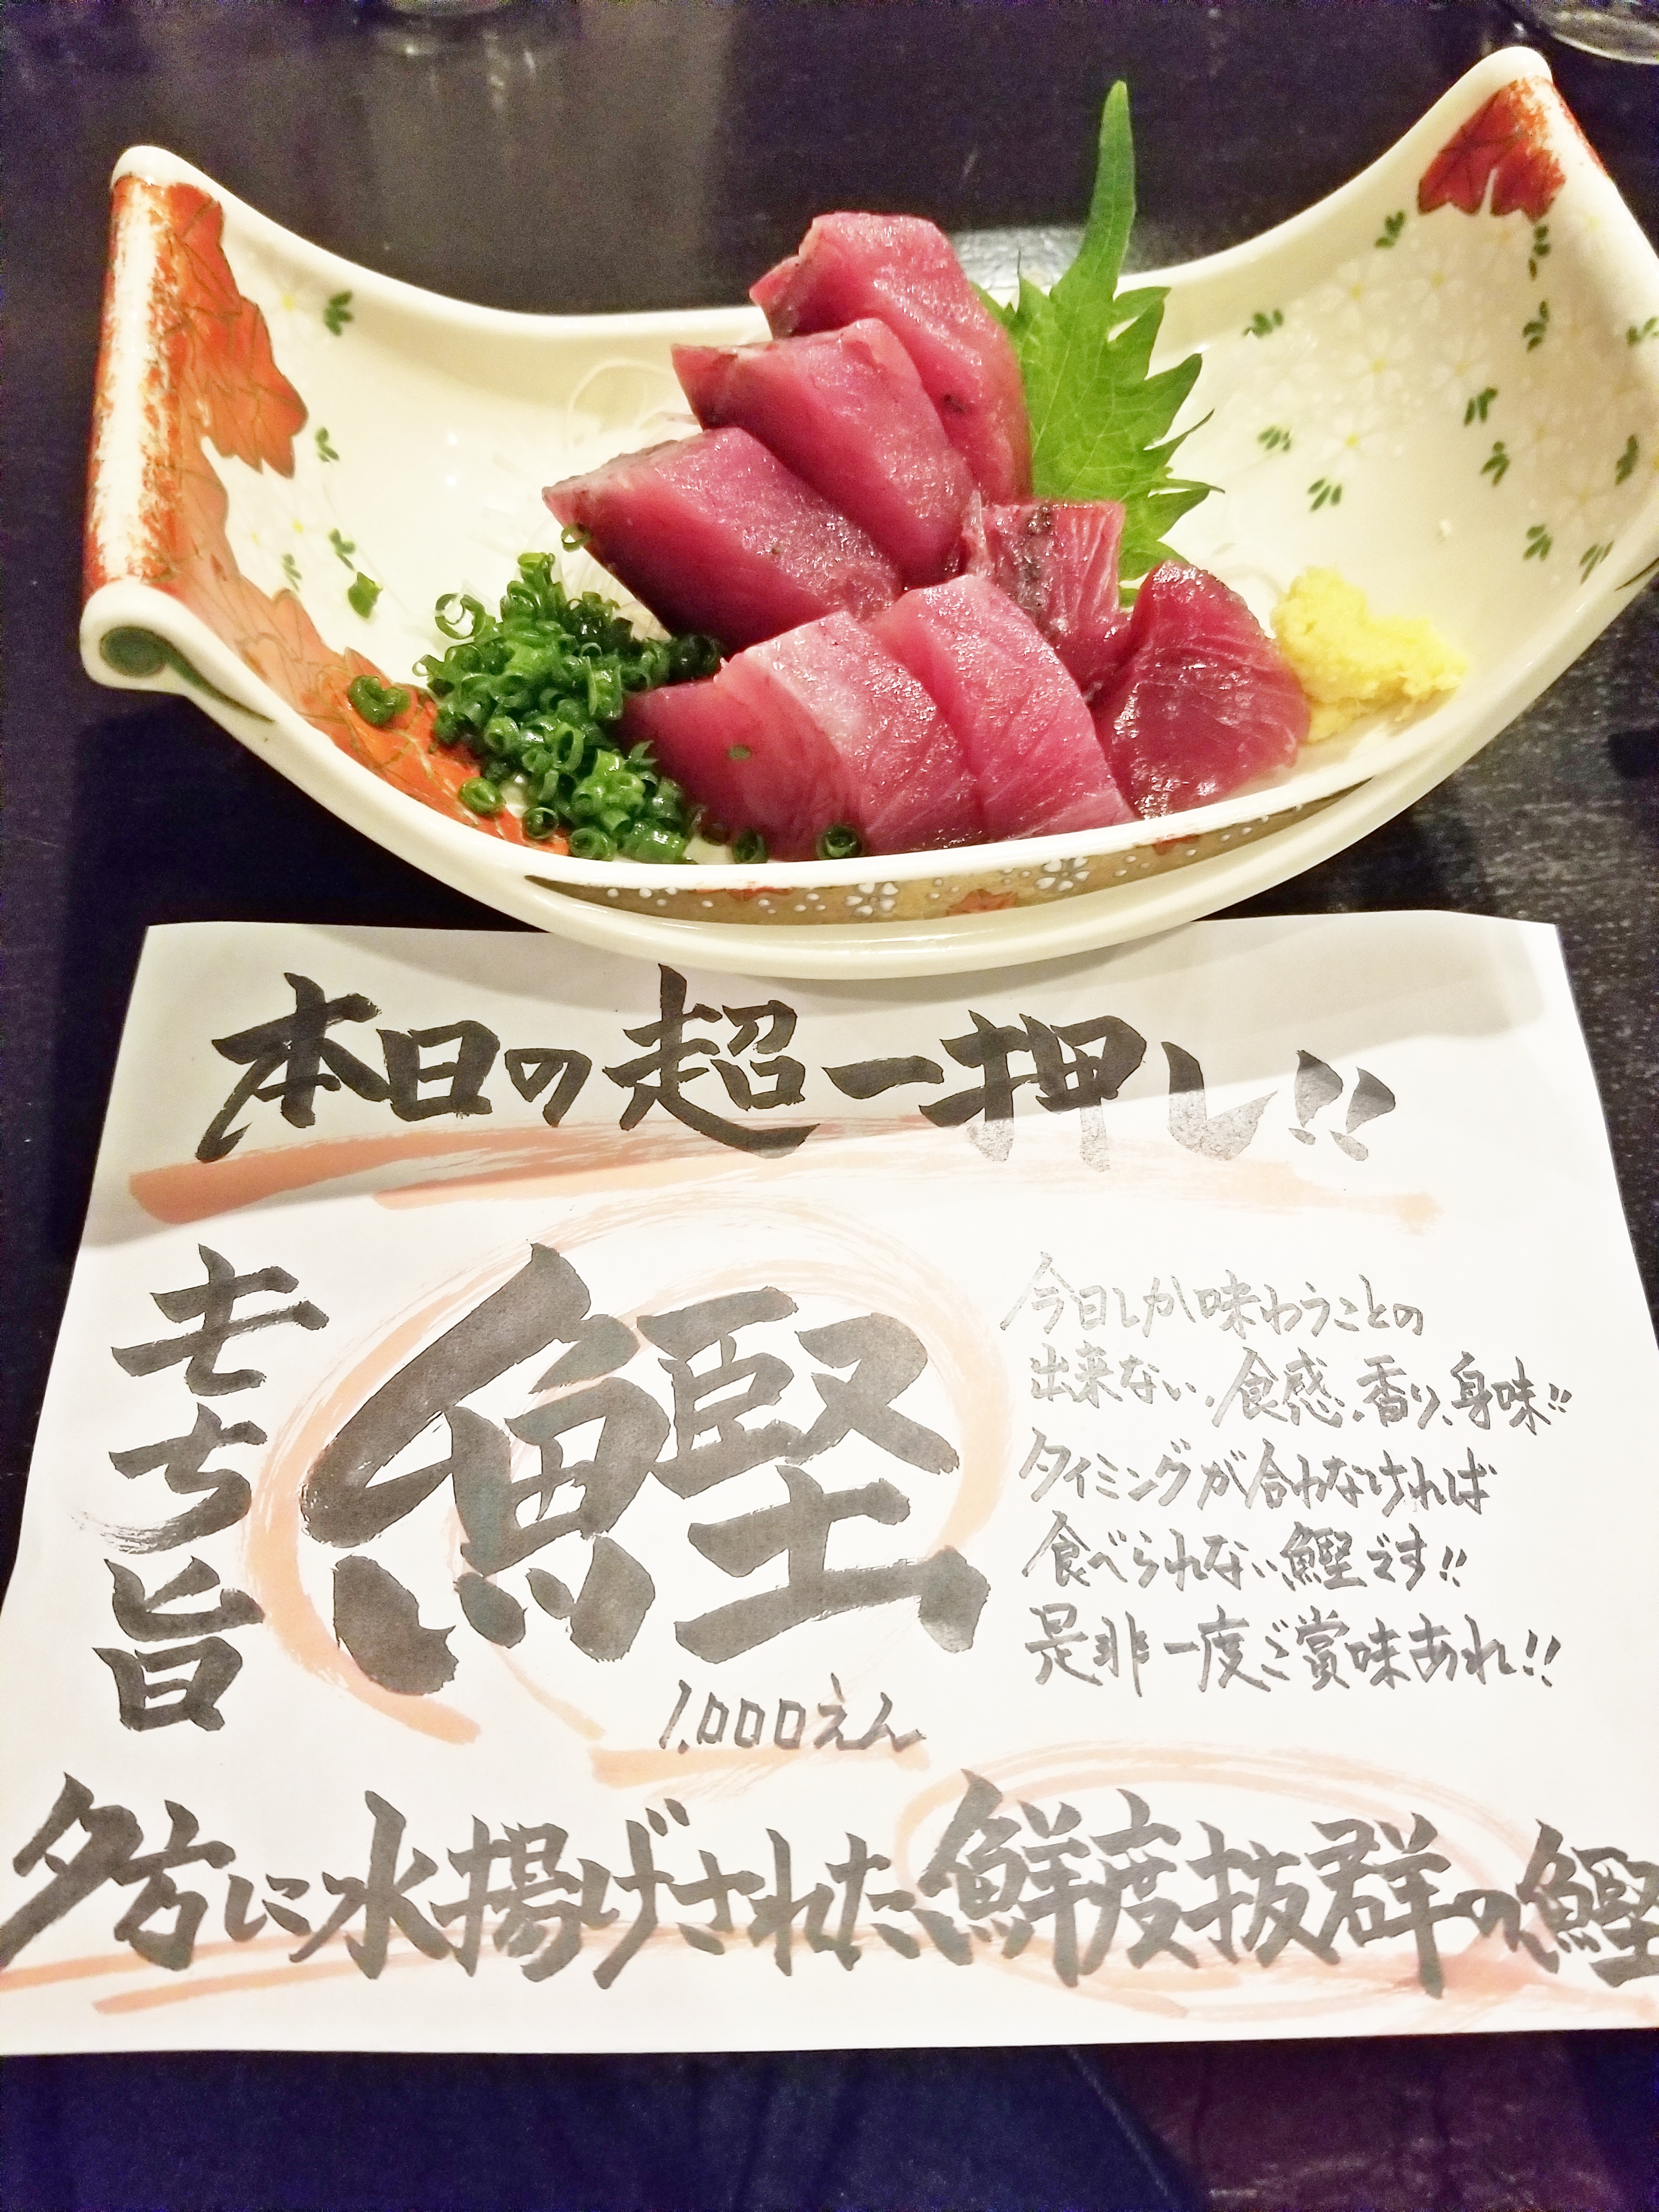 本日の超一押し!!
モチ旨
鰹
1,000えん
今日しか味わうことの
出来ない、食感、香り、身味!!
タイミングが合わなければ
食べられない鰹です!!
是非一度ご賞味あれ!!
夕方に水揚げされた鮮度抜群の鰹